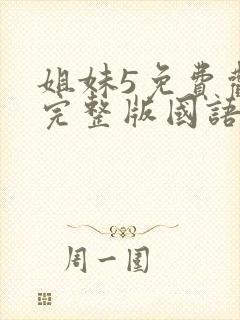 姐妹5免費
完整版國語
周一圍